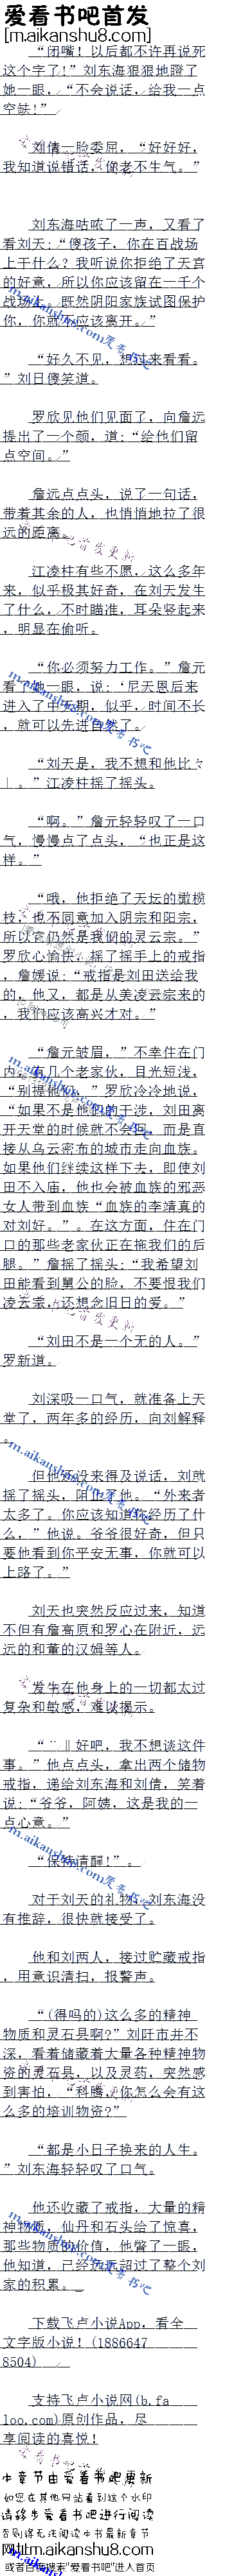 爱看书吧首发
[m.aikanshu8.com]
“闭嘴！以后都不许再说死
这个字了!”刘东海狠狠地瞪了
她一眼，“不会说话，给我一点
空缺!”
刘倩一脸委屈，“好好好，
我知道说错话，你老不生气。”
刘东海咕哝了一声，又看了
看刘天:“傻孩子，你在百战场
上干什么？我听说你拒绝了天宫
的好意，所以你应该留在一千个
战场上。既然阴阳家族试图保护
你，你就不应该离开。”
“好久不见，想过来看看。
”刘日傻笑道。
罗欣见他们见面了，向詹远
提出了一个颜，道:“给他们留
点空间。”
詹远点点头，说了一句话，
带着其余的人，也悄悄地拉了很
远的距离。
江凌柱有些不愿，这么多年
来，似乎极其好奇，在刘天发生
了什么，不时瞄准，耳朵竖起来
，明显在偷听。
“你必须努力工作。”詹元
看了她一眼，说:‘尼天恩后来
进入了中五期，似乎，时间不长
，就可以先进自然了。
“刘天是，我不想和他比々
亅。”江凌柱摇了摇头。
“啊。”詹元轻轻叹了一口
气，慢慢点了点头，“也正是这
样。”
“哦，他拒绝了天坛的橄榄
枝，也不同意加入阴宗和阳宗，
所以它仍然是我们的灵云宗。”
罗欣心愉快，摇了摇手上的戒指
，詹媛说:“戒指是刘田送给我
的，他又，都是从美凌云宗来的
，我们应该高兴才对。”
“詹元皱眉，”不幸住在门
内。有几个老家伙，目光短浅，
“别提他们，”罗欣冷冷地说，
“如果不是他们的干涉，刘田离
开天堂的时候就不会回，而是直
接从乌云密布的城市走向血族。
如果他们继续这样下去，即使刘
田不入庙，他也会被血族的邪恶
女人带到血族“血族的李清真的
对刘好。”。在这方面，住在门
口的那些老家伙正在拖我们的后
腿。”詹摇了摇头:“我希望刘
田能看到舅公的脸，不要恨我们
凌云宗，还想念旧日的爱。”
“刘田不是一个无的人。”
罗新道。
刘深吸一口气，就准备上天
堂了，两年多的经历，向刘解释
。
但他还没来得及说话，刘就
摇了摇头，阻止了他。“外来者
太多了。你应该知道你经历了什
么，”他说。爷爷很好奇，但只
要他看到你平安无事，你就可以
上路了。”
刘天也突然反应过来，知道
不但有詹高原和罗心在附近，远
远的和董的汉姆等人。
发生在他身上的一切都太过
复杂和敏感，难以揭示。
“¨‖好吧，我不想谈这件
事。”他点点头，拿出两个储物
戒指，递给刘东海和刘倩，笑着
说:“爷爷，阿姨，这是我的一
点心意。”
“保持清醒!”。
对于刘天的礼物，刘东海没
有推辞，很快就接受了。
他和刘两人，接过贮藏戒指
，用意识清扫，报警声。
“(得吗的)这么多的精神
物质和灵石县啊?”刘阡市并不
深，看着储藏着大量各种精神物
资的灵石县，以及灵药，突然感
到害怕，“科腾，你怎么会有这
么多的培训物资?”
“都是小日子换来的人生。
”刘东海轻轻叹了口气。
他还收藏了戒指，大量的精
神物质，仙丹和石头给了惊喜，
那些物质的价值，他瞥了一眼，
他知道，已经远远超过了整个刘
家的积累。
下载飞卢小说App，看全
文字版小说！(1886647
8504)
支持飞卢小说网(b.fa
loo.com)原创作品，尽
享阅读的喜悦！
本章节由爱看书吧更新
如您在其他网站看到这个水印
请移步爱看书吧进行阅读
否则将无法阅读本书最新章节
网址m.aikanshu8.com
或者百度搜索“爱看书吧”进入首页